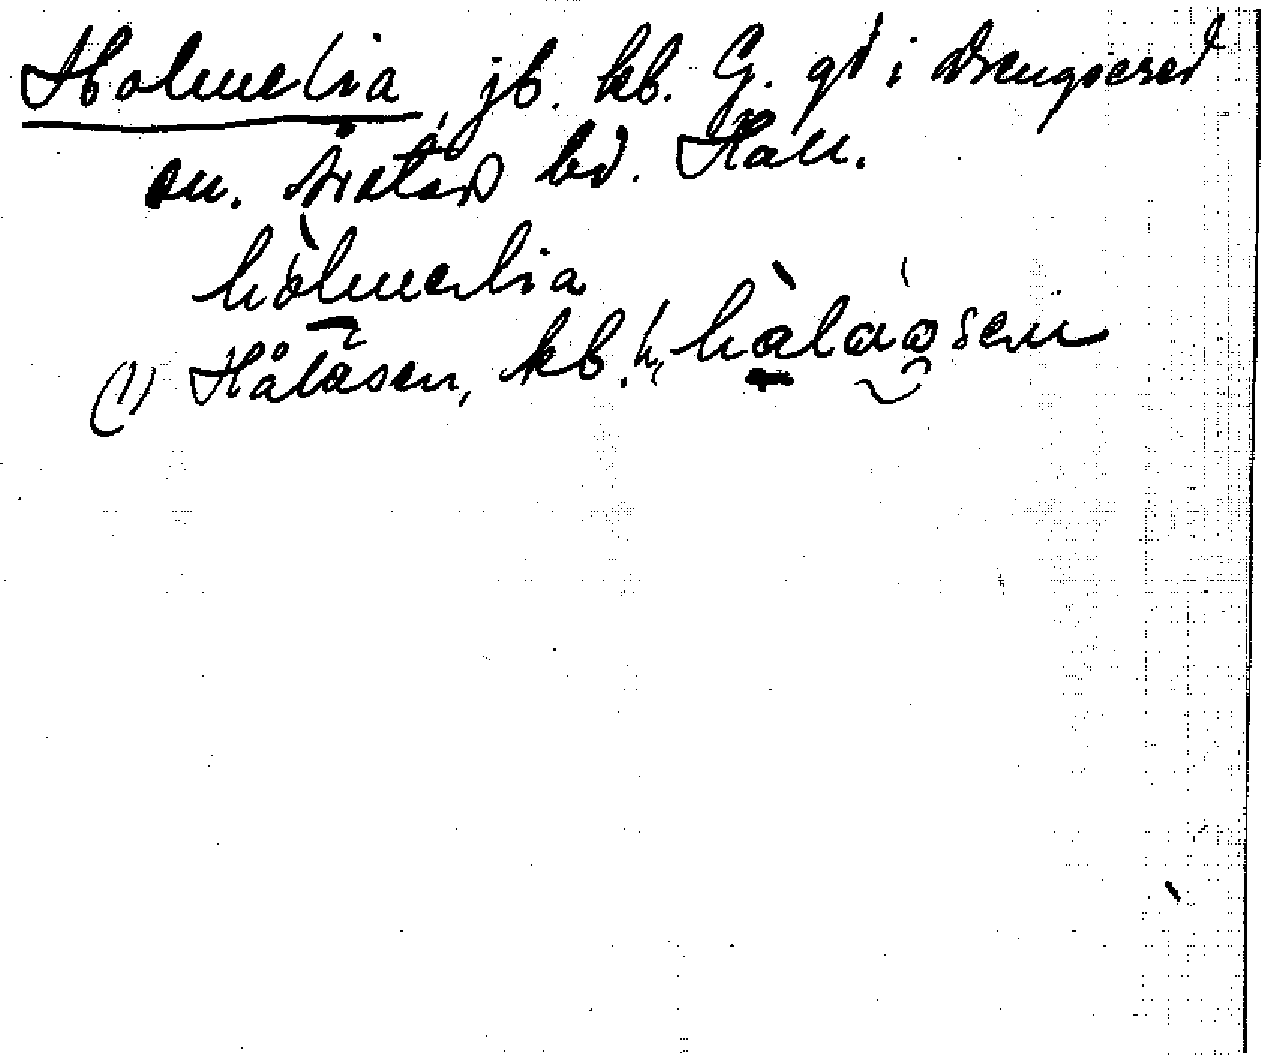 Holmelia, jb. kb. G. gd i Drengsered
sn. Årstad hd. Hall.
hòlmelia
(1) Hålåsen, kb. h, hàlaåsen